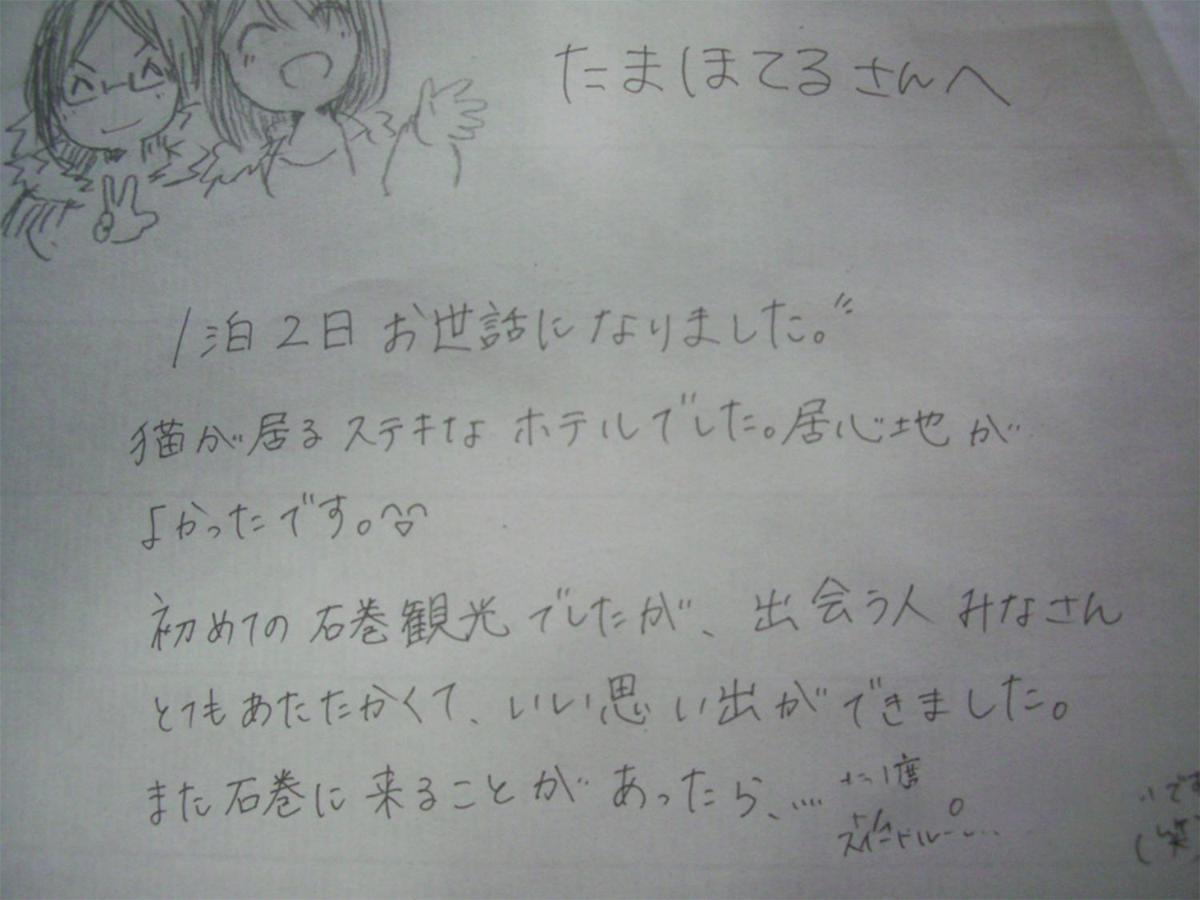 たまほてるさんへ
1泊2日お世話になりました。
猫が居るステキなホテルでした。居心地が
よかったです。
初めての石巻観光でしたが、出会う人みなさん
とてもあたたかくて、いい思い出ができました。
また石巻に来ることがあったら、....
スイートルー
です
(笑